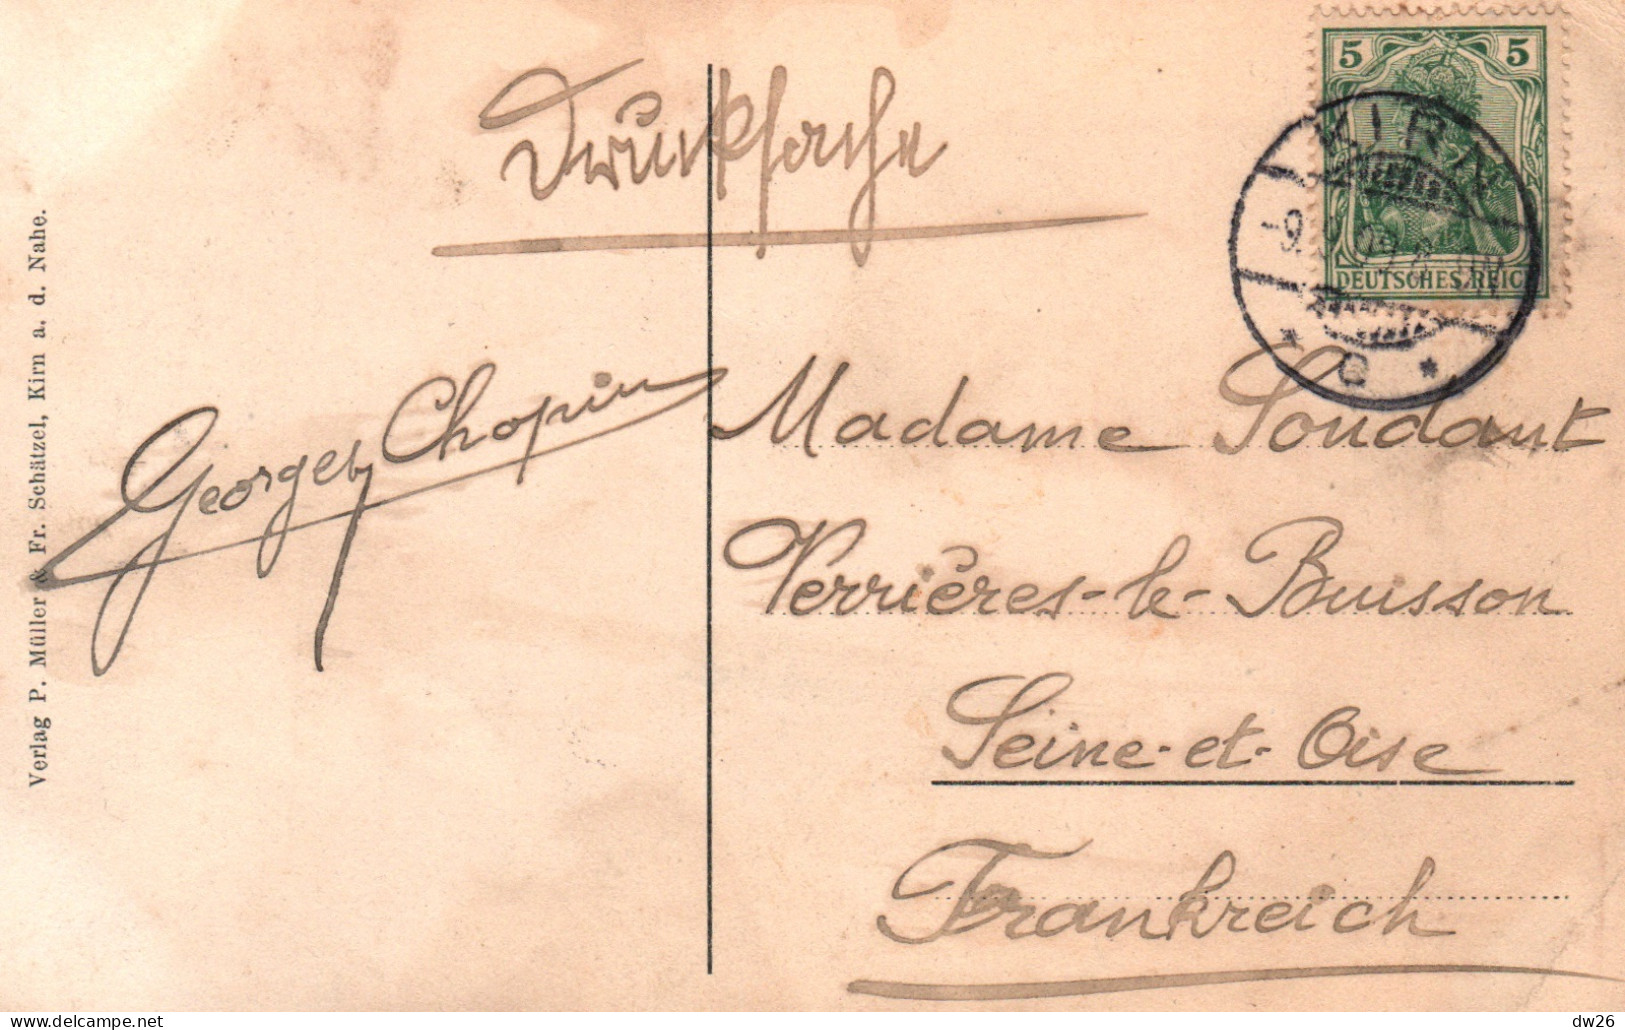 Drucksache
5 5
DEUTSCHES REICH
KIRN
* c *
Verlag P. Müller & Fr. Schätzel, Kirn a. d. Nahe.
Georges Chopin
Madame Soudant
Verrières-le-Buisson
Seine-et-Oise
Frankreich
dw26